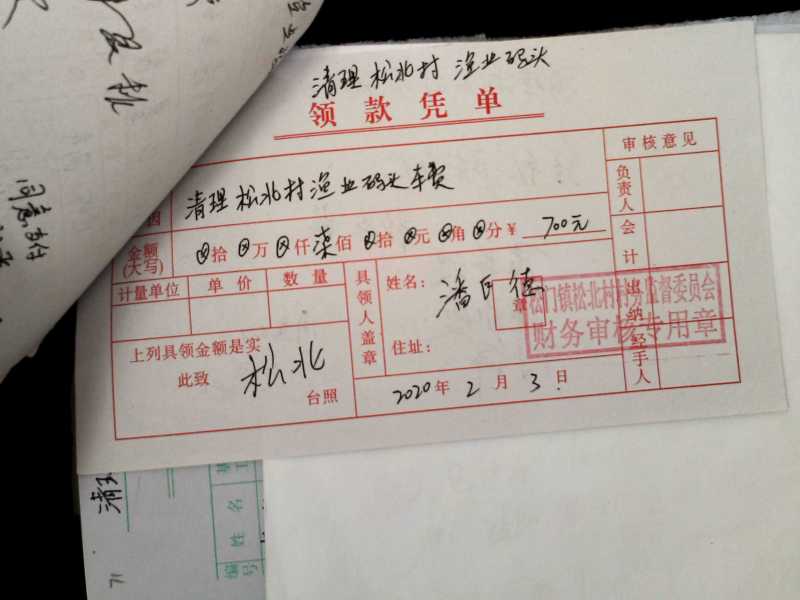 清理松北村 渔业码头
领款凭单
审核意见
清理松北村渔业码头车费
负责人
金额(大写) ⊗拾⊗万⊗仟柒佰⊗拾⊗元⊗角⊗分¥ 700元
会计
计量单位 单价 数量
具领人盖章
姓名:
章
住址:
松门镇松北村村务监督委员会
财务审核专用章
出纳
经手人
上列具领金额是实
此致 松北 台照
2020年2月3日
同意支付
姓名
编号